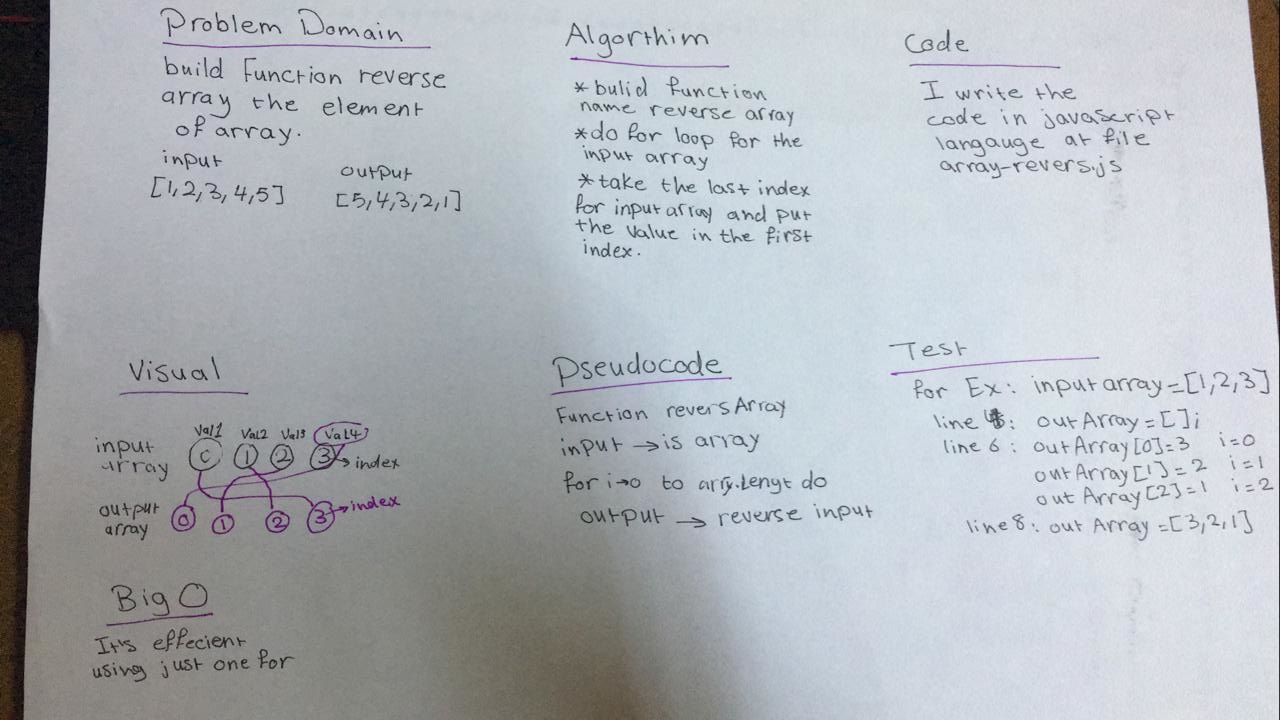 Problem Domain
build Function reverse
array the element
of array.
input
[1,2,3,4,5]
output
[5,4,3,2,1]
Algorthim
* bulid function
name reverse array
*do for loop for the
input array
*take the last index
for input array and put
the value in the first
index.
Code
I write the
code in javascript
langauge at file
array-revers.js
Visual
val1 val2 val3 val4
input
array
0 1 2 3 → index
output
array
0 1 2 3 → index
Pseudocode
Function reversArray
input → is array
for i→0 to arry.lengt do
output → reverse input
Test
for Ex: input array=[1,2,3]
line 4: outArray=[];
line 6: outArray[0]=3 i=0
outArray[1]=2 i=1
out Array[2]=1 i=2
line 8: out Array=[3,2,1]
Big O
It's effecient
using just one for